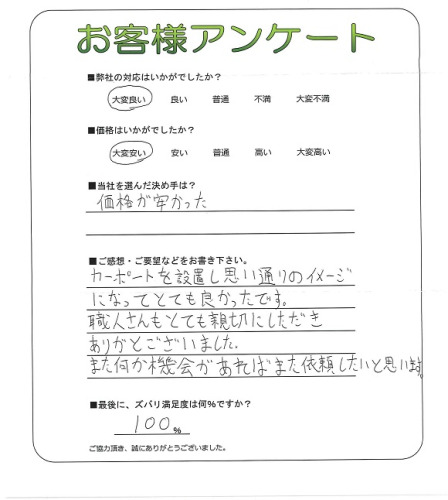 お客様アンケート
■弊社の対応はいかがでしたか？
大変良い 良い 普通 不満 大変不満
■価格はいかがでしたか？
大変安い 安い 普通 高い 大変高い
■当社を選んだ決め手は？
価格が安かった
■ご感想・ご要望などをお書き下さい。
カーポートを設置し思い通りのイメージ
になってとても良かったです。
職人さんもとても親切にしただき
ありがとございました。
また何か機会があればまた依頼したいと思います。
■最後に、ズバリ満足度は何%ですか？
100%
ご協力頂き、誠にありがとうございました。